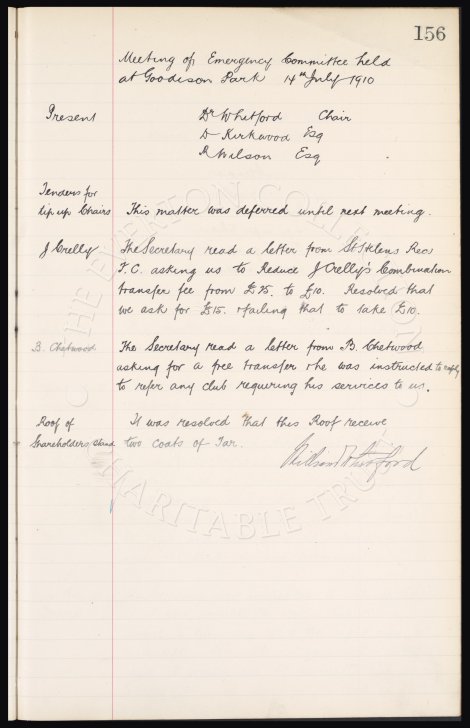 156
Meeting of Emergency Committee held
at Goodison Park 14th July 1910
Present Dr Whitford Chair
D Kirkwood Esq
A Wilson Esq
Tenders for
tip up Chairs This matter was deferred until next meeting.
J Crelly The Secretary read a letter from St Helens Rec
F.C. asking us to Reduce J Crelly's Combination
transfer fee from £25. to £10. Resolved that
we ask for £15. & failing that to take £10.
B. Chetwood The Secretary read a letter from B. Chetwood
asking for a free transfer & he was instructed to reply
to refer any club requering his services to us.
Roof of It was resolved that this Roof receive
Shareholders Stand two coats of Tar.
William Whitford
THE EVERTON COLLECTION
CHARITABLE TRUST